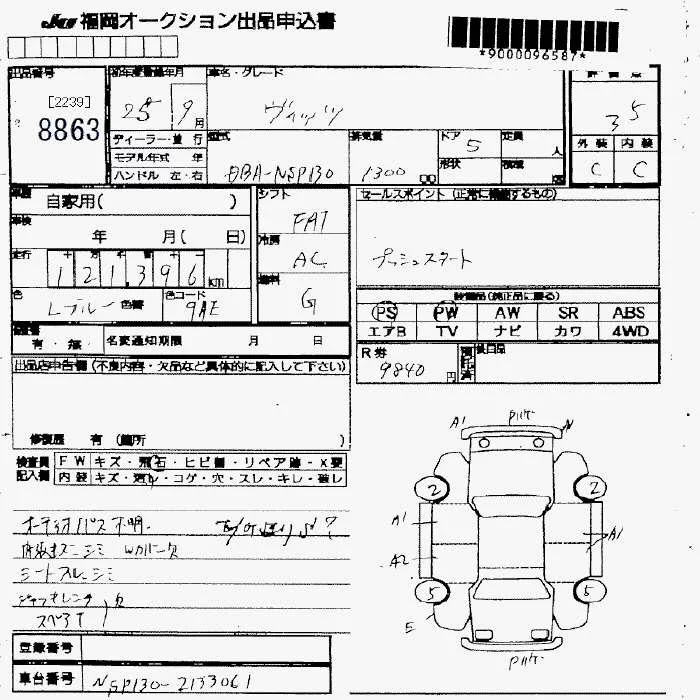 JU 福岡オークション出品申込書
*9000096587*
出品番号 初年度登録年月 車名・グレード 評価点
[2239]
8863
25年 9月 ヴィッツ 3 5
ディーラー・並行 型式 排気量 ドア 5 定員 人 外装 内装
モデル年式 年 DBA-NSP130 1300 cc 形状 積載 C C
ハンドル 左・右
車歴 自家用( ) シフト FAT セールスポイント (正常に機能するもの)
車検 年 月( 日) 冷房 AC プッシュスタート
走行 十万千百十一
121,396 km 燃料 G
色 Lブルー 色替 色コード 9AE 装備品(純正品に限る)
PS PW AW SR ABS
エアB TV ナビ カワ 4WD
有・無 名変通知期限 月 日 R券 9840円 預託済 後日品
出品店申告欄 (不良内容・欠品など具体的に記入して下さい)
修復歴 有 (箇所 )
検査員記入欄 FW キズ・飛石・ヒビ割・リペア跡・X要
内装 キズ・汚れ・コゲ・穴・スレ・キレ・破レ
オーディオパス不明
シミ Wカバー欠
シートスレ シミ
ジャッキレンチ 欠
スペアT
A1 N
2 2
A1 A1
A2
5 5
E
登録番号
車台番号 NSP130-2133061